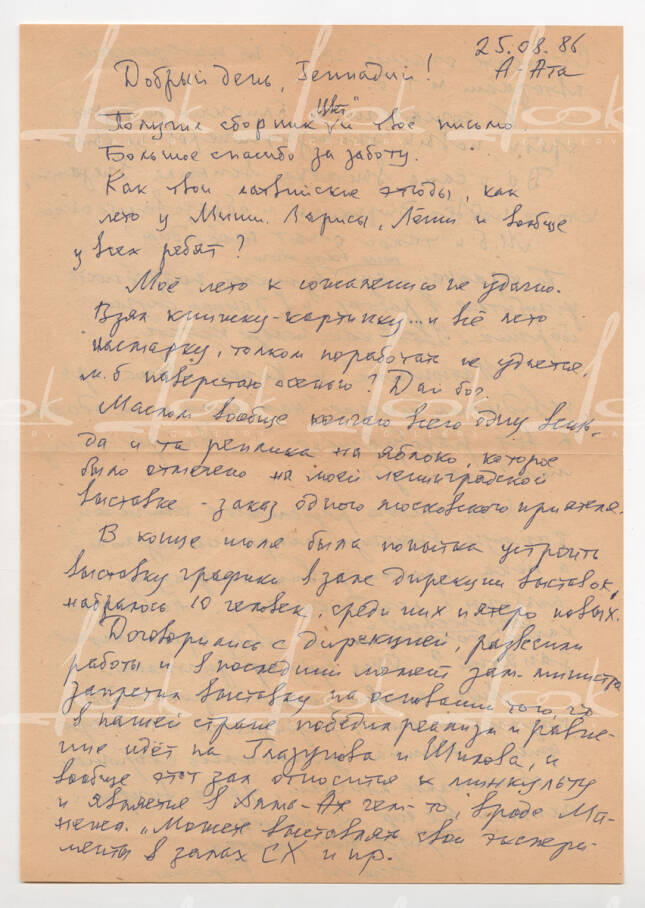 25.08.86
А-Ата
Добрый день, Геннадий!
Получил сборник и твоё письмо.
Большое спасибо за заботу.
Как твои латвийские этюды, как
лето у Миши. Ларисы, Лёши и вообще
у всех ребят?
Моё лето к сожалению не удачно.
Взял книжку-картинку... и всё лето
насмарку, толком поработать не удаётся,
м.б наверстаю осенью? Дай бог.
Маслом вообще кончаю всего одну вещь,
да и та реплика на яблоко, которое
было отмечено на моей ленинградской
выставке - заказ одного московского приятеля.
В конце июля была попытка устроить
выставку графики в зале дирекции выставок,
набралось 10 человек, среди них пятеро новых.
Договорились с дирекцией, развесили
работы и в последний момент зам. министра
запретил выставку на основании того, что
в нашей стране победил реализм и равне-
ние идёт на Глазунова и Шилова, и
вообще этот зал относится к минкульту
и является в Алма-Ате чем-то, вроде Ма-
нежа. „Может выставлять свои экспери-
менты в залах СХ и пр.
look